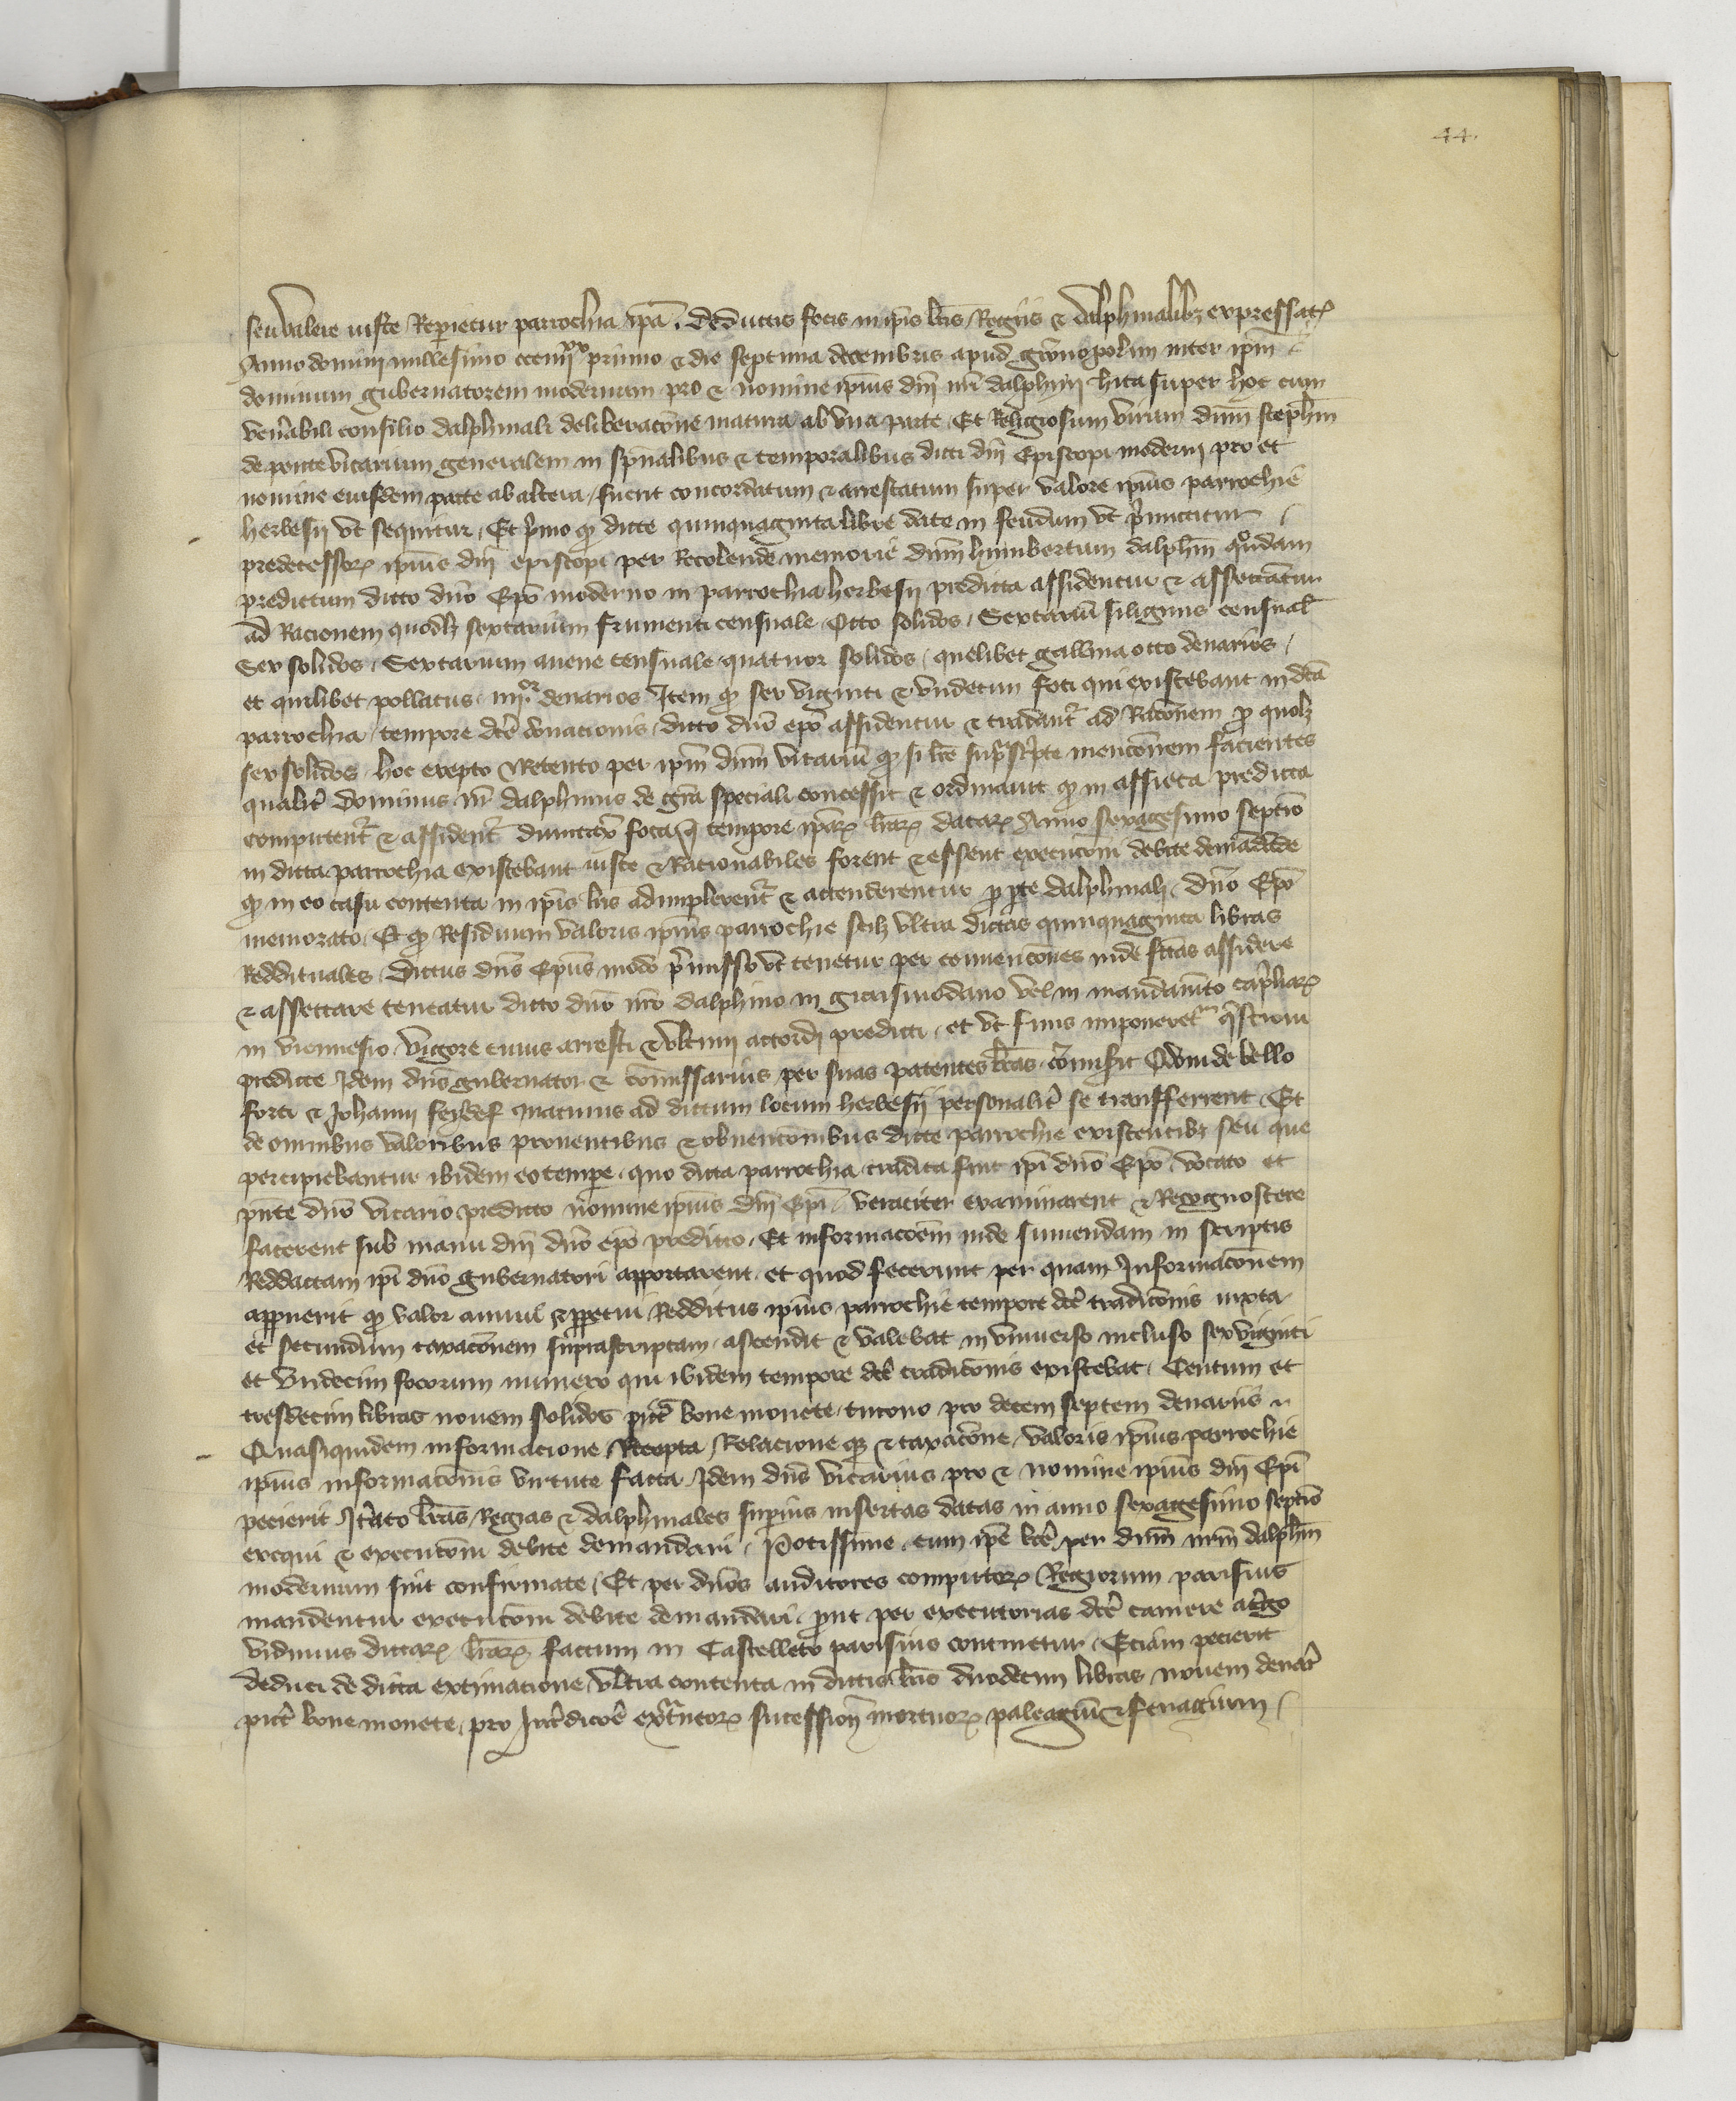 44.
seu valere iuste Reperietur parrochia ipā. Deductis focis in ip̄is lr̄is Regiis & dalphinalibȝ expressatꝭ
Anno domini millesimo ccc primo & die septima decembris apud gr̄onopolim inter ip̄m
dominum gubernatorem modernum pro & nomine ip̄ius dn̄i nr̄i dalphini hita super hoc cum
ven̄abili consilio dalphinali deliberacōne matura ab vna parte. Et Religiosum virum dnm̄ stephm̄
de ponte vicarium generalem in spūalibus & temporalibus dicti dn̄i Episcopi moderni pro et
nomine eiusdem parte ab altera, fuerit concordatum & arrestatum super valore ip̄ius parrochie
herbesii vt sequitur. Et p̄mo qꝫ dicte quinquaginta libre date in feudum vt p̄mictitur
predecessorꝝ ip̄ius dn̄i episcopi per Recolende memorie dnm̄ humbertum dalphm̄ qͦndam
predictum dicto dn̄o Ep̄o moderno in parrochia herbesii predicta assidentur & assectantur
ad Racionem quodlȝ sextarium frumenti censuale Octo solidos, Sextariū siliginis censual̄
Sex solidos, Sextarium auene censuale quatuor solidos, quelibet gallina octo denarios,
et quilibet pollatus iiijoꝛ denarios Item qꝫ sex viginti & vndecim foci qui existebant in dc̄a
parrochia tempore dc̄e donacionis dicto dn̄o ep̄o assidentur & tradant̄ ad Racōnem p̄ quolȝ
sex solidos, hoc exepto & Retento per ip̄m dnm̄ vicariū qꝫ si lr̄e supͣscͥpte mencōnem facientes
qualit̄ dominus nr̄ dalphinus de gr̄a speciali concessit & ordinauit qꝫ in assieta predicta
computent̄ & assident̄ dumtax̄ foca q̄ tempore ip̄arꝝ lr̄arꝝ datarꝝ Anno sexagesimo septīo
in dicta parrochia existebant iuste & Racionabiles forent & essent execucōni debite demādāde
qꝫ in eo casu contenta in ip̄is lr̄is adimplerent̄ & attenderentur p̄ p̄te dalphinali, dn̄o Ep̄o
memorato. Et qꝫ Residuum valoris ip̄ius parrochie scilȝ vltra dictas quinquaginta libras
Reddituales. Dictus dn̄s Ep̄us modo p̄misso vt tenetur per conuencōnes inde fc̄tas assidere
& assectare teneatur dicto dn̄o nr̄o dalphino in graisiuodano vel in mandam̄to
in viennesio. Vigore cuius arresti & vltimi accordi predicti, et vt finis imponeret̄ q̄stioni
predicte Idem dn̄s gubernator & comissarius per suas patentes lr̄as comisit de bello
forti & Johanni quatinus ad dictum locum herbesii personalit̄ se transferrent. Et
de omnibus valoribus prouentibus & obuencōnibus dicte parrochie existentibȝ seu que
percipiebantur ibidem eo tempe. quo dicta parrochia tradita fuit ip̄i dn̄o Ep̄o vocato et
pn̄te dn̄o vicario predicto nomine ip̄ius dn̄i Ep̄i. veraciter examinarent & Recognoscere
facerent sub manu dn̄i dn̄o ep̄o predicto. Et informacōem inde sumendam in scriptis
Reddactam ip̄i dn̄o gubernatori apportarent. et quod fecerunt per quam Informacōnem
appuerit qꝫ valor annui & ꝑpetui Redditus ip̄ius parrochie tempore dc̄e tradicōnis iuxta
et secundum taxacōnem suprascriptam, ascendit & valebat in vniuerso incluso sex viginti
et vndecim focorum numero qui ibidem tempore dc̄e tradicōnis existebat. Centum et
tresdecim libras nouem solidos bone monete, turono pro decem septem denariis
Quasiquidem informacione Recepta, Relacione qꝫ & taxacōne valoris ip̄ius parrochie
ip̄ius informacōnis virtute facta. Idem dn̄s vicarius pro & nomine ip̄ius dn̄i Ep̄i
pecierit Itͤato lr̄as Regias & dalphinales supius insertas datas in anno sexagesimo septīo
exequi & execucōni debite demandari, Potissime, cum ip̄e lr̄e per dnm̄ nrm̄ dalphm̄
modernum sint confirmate, Et per dn̄os auditores computorꝝ Regiorum parisius
mandentur execucōni debite demandari, put per executorias dc̄e camere
vidimus dictarꝝ lr̄arꝝ factum in Castelleto parisius continetur, Eciam pecierit
deduci de dicta extimacione vltra contenta in dictis lr̄is duodecim libras nouem denar̄
bone monete, pro sucessioñ mortuorꝝ paleagiū & fenagium,